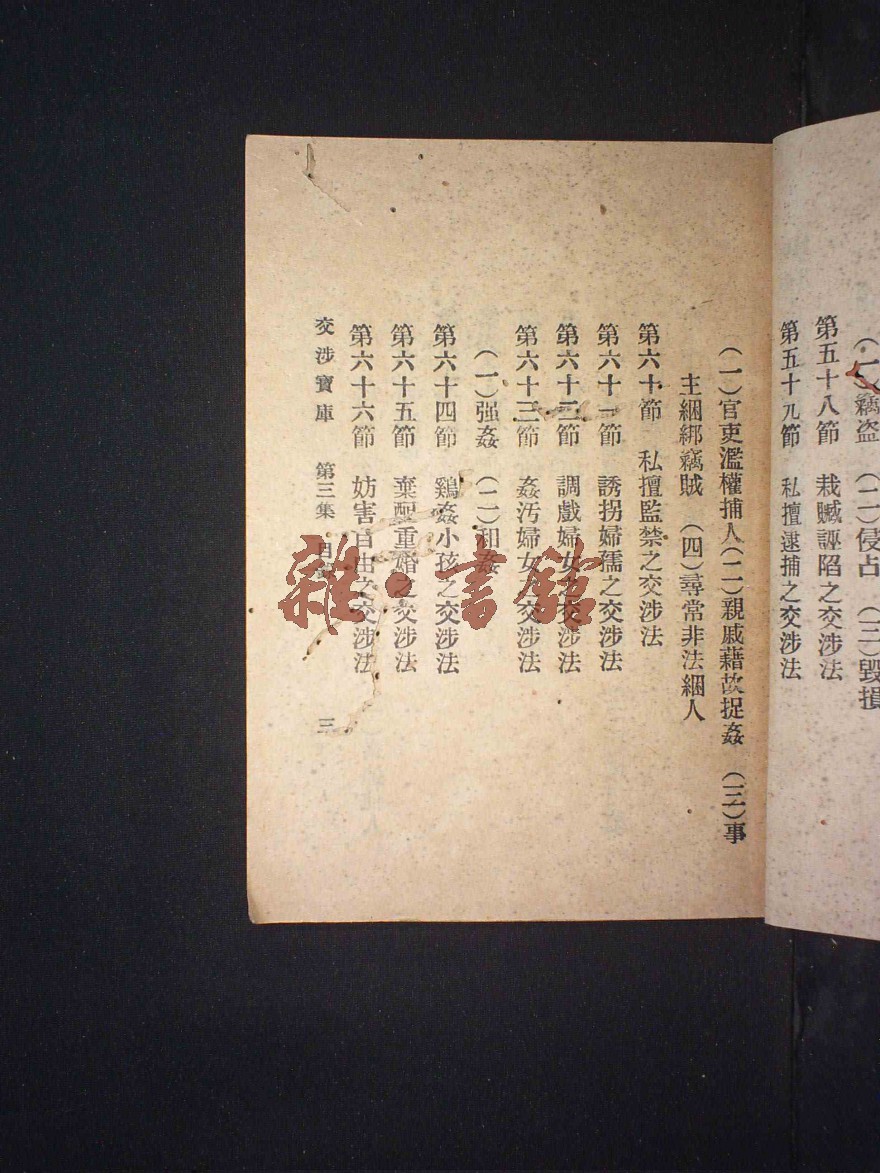 (一)竊盗 (二)侵占 (三)毀損
第五十八節 栽贓誣陷之交涉法
第五十九節 私擅逮捕之交涉法
(一)官吏濫權捕人(二)親戚藉故捉姦 (三)事
主綑綁竊賊 (四)尋常非法綑人
第六十節 私擅監禁之交涉法
第六十一節 誘拐婦孺之交涉法
第六十二節 調戲婦女之交涉法
第六十三節 姦汚婦女之交涉法
(一)强姦 (二)和姦
第六十四節 鷄姦小孩之交涉法
第六十五節 棄配重婚之交涉法
第六十六節 妨害自由之交涉法
交涉寶庫 第三集 目 三
雜·書館